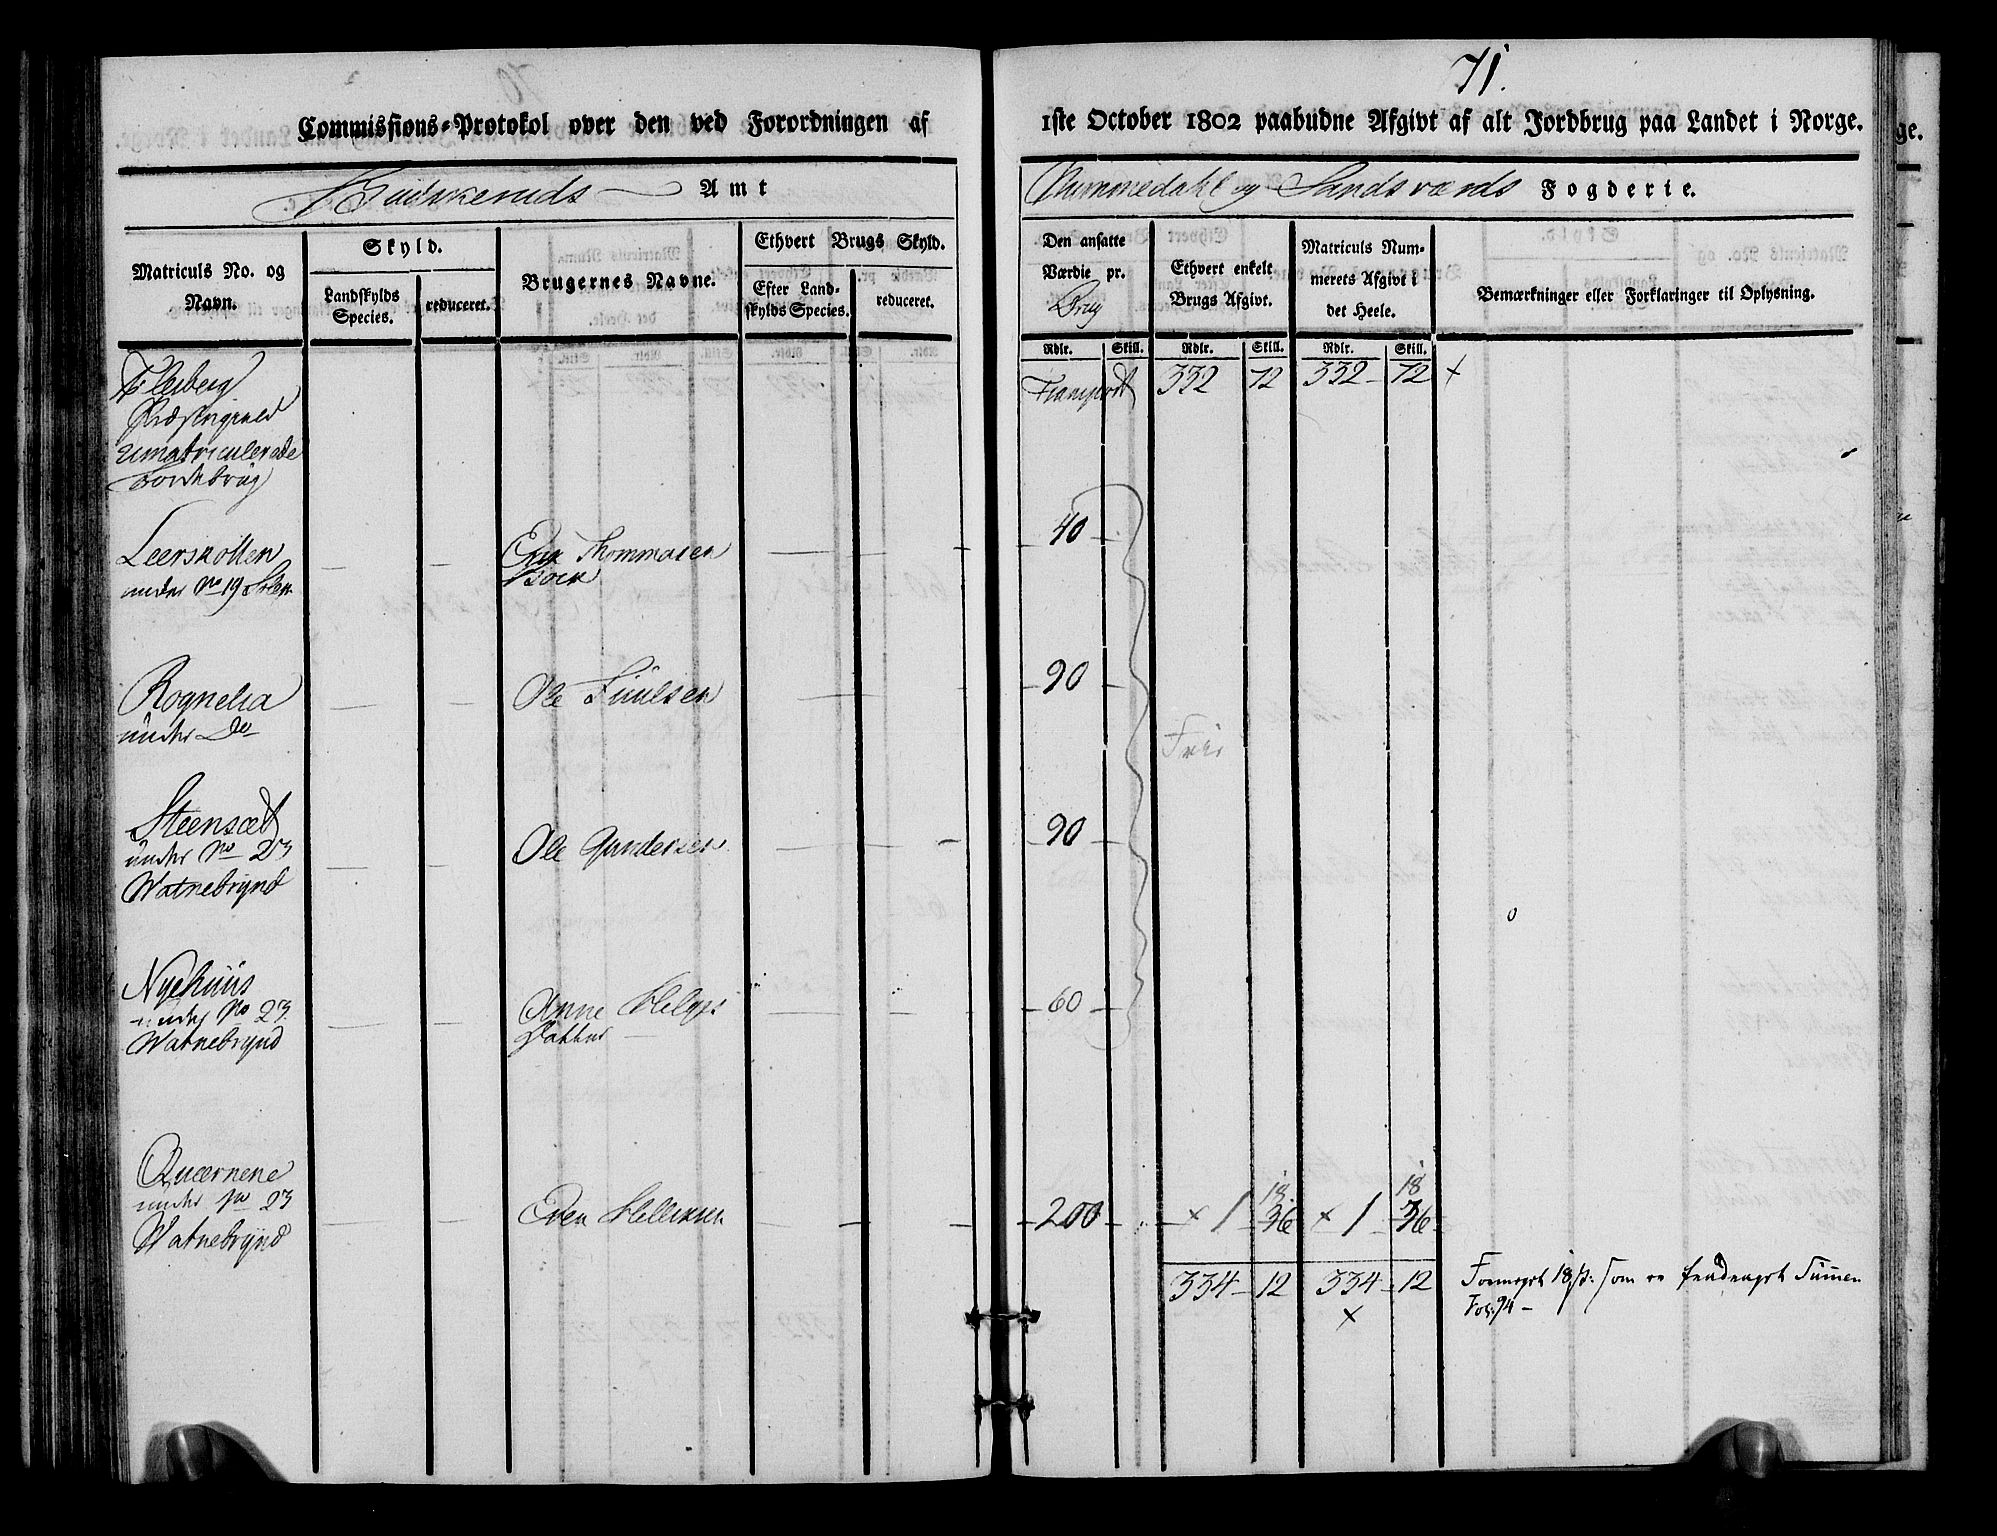 71.
Commissions-Protokol over den ved Forordningen af 1ste October 1802 paabudne Afgivt af alt Jordbrug paa Landet i Norge.
Buskeruds Amt
Nummedahl og Sandsværds Fogderie.
Matriculs No. og Navn.
Skyld.
Landskylds Species.
reduceret.
Brugernes Navne.
Ethvert Brugs Skyld.
Efter Landskylds Species.
reduceret.
Den ansatte Værdie pr. Brug
Ethvert enkelt Brugs Afgivt.
Matriculs Nummerets Afgivt i det Heele.
Bemærkninger eller Forklaringer til Oplysning.
Rdlr. Skill. Rdlr. Skill. Rdlr. Skill.
Flesberg
Præstegield
umatriculerede
Jordebrug
Transport 332 72 332 - 72 x
Leerskotten
under No 19 Steen
Thommasen
40
Rognelia
under Do
Ole Juulsen
90
Frie
Steensæt
under No 23
Watnebrynd
Ole Gundersen
90
Nyehuus
under No 23
Watnebrynd
Anne Helges
Datter
60
Quærnene
under No 23
Watnebrynd
Even Hellixsen
200 x 1 36 x 1 36
18 18
334 - 12 334 - 12
x
18 s. som er Summen
Fol: 94 -